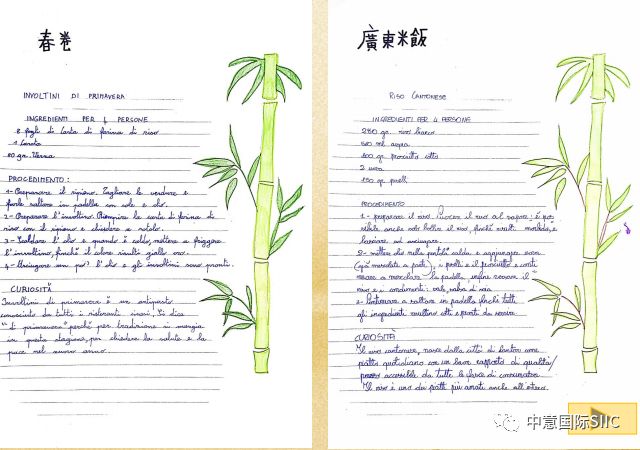 春卷
INVOLTINI DI PRIMAVERA
INGREDIENTI PER 4 PERSONE
8 fogli di carta di farina di riso
1 carota
80 gr. verza
PROCEDIMENTO:
1- Preparare il ripieno. Tagliare le verdure e
farle saltare in padella con sale e olio.
2- Preparare l'involtino. Riempire la carta di farina di
riso con il ripieno e chiudere a rotolo.
3- Scaldare l'olio e quando è caldo, mettere a friggere
l'involtino, finché il colore risulti giallo oro.
4- Asciugare un po' l'olio e gli involtini sono pronti.
CURIOSITÀ
Involtini di primavera è un antipasto
conosciuto da tutti i ristoranti cinesi. Si dice
"di primavera" perché per tradizione si mangia
in questa stagione, per chiedere la salute e la
pace nel nuovo anno.
廣東米飯
RISO CANTONESE
INGREDIENTI PER 4 PERSONE
280 gr. riso bianco
500 ml acqua
100 gr. prosciutto cotto
2 uova
150 gr. piselli
PROCEDIMENTO
1- preparare il riso. cuocere il riso al vapore: è pos
sibile anche solo bollire il riso, finché risulti morbido, e
lasciare ad asciugare.
2- mettere olio nella padella calda e aggiungere uova
(già mescolate a parte), i piselli e il prosciutto e conti
nuare a mescolare la padella infine versare il
riso e i condimenti: sale, salsa di soia
3- Continuare a saltare in padella finché tutti
gli ingredienti risultino cotti e pronti da servire
CURIOSITÀ
Il riso cantonese, nasce dalla città di Canton come
piatto quotidiano con un buon rapporto di qualità/
prezzo accessibile da tutte le fasce di consumatori
Il riso è uno dei piatti più amati anche all'estero.
中意国际SIIC